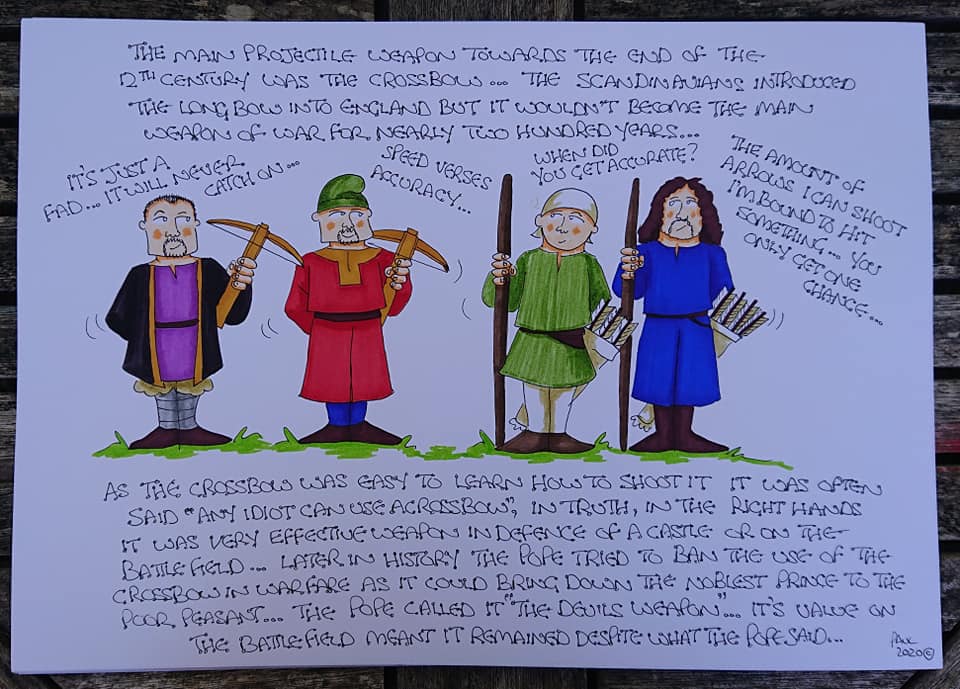 THE MAIN PROJECTILE WEAPON TOWARDS THE END OF THE
12TH CENTURY WAS THE CROSSBOW... THE SCANDINAVIANS INTRODUCED
THE LONG BOW INTO ENGLAND BUT IT WOULDN'T BECOME THE MAIN
WEAPON OF WAR FOR NEARLY TWO HUNDRED YEARS...
IT'S JUST A
FAD... IT WILL NEVER
CATCH ON...
SPEED VERSES
ACCURACY...
WHEN DID
YOU GET ACCURATE?
THE AMOUNT OF
ARROWS I CAN SHOOT
I'M BOUND TO HIT
SOMETHING... YOU
ONLY GET ONE
CHANCE...
AS THE CROSSBOW WAS EASY TO LEARN HOW TO SHOOT IT IT WAS OFTEN
SAID "ANY IDIOT CAN USE A CROSSBOW", IN TRUTH, IN THE RIGHT HANDS
IT WAS VERY EFFECTIVE WEAPON IN DEFENCE OF A CASTLE OR ON THE
BATTLEFIELD... LATER IN HISTORY THE POPE TRIED TO BAN THE USE OF THE
CROSSBOW IN WARFARE AS IT COULD BRING DOWN THE NOBLEST PRINCE TO THE
POOR PEASANT.... THE POPE CALLED IT "THE DEVILS WEAPON".... IT'S VALUE ON
THE BATTLEFIELD MEANT IT REMAINED DESPITE WHAT THE POPE SAID...
PAUL
2020©